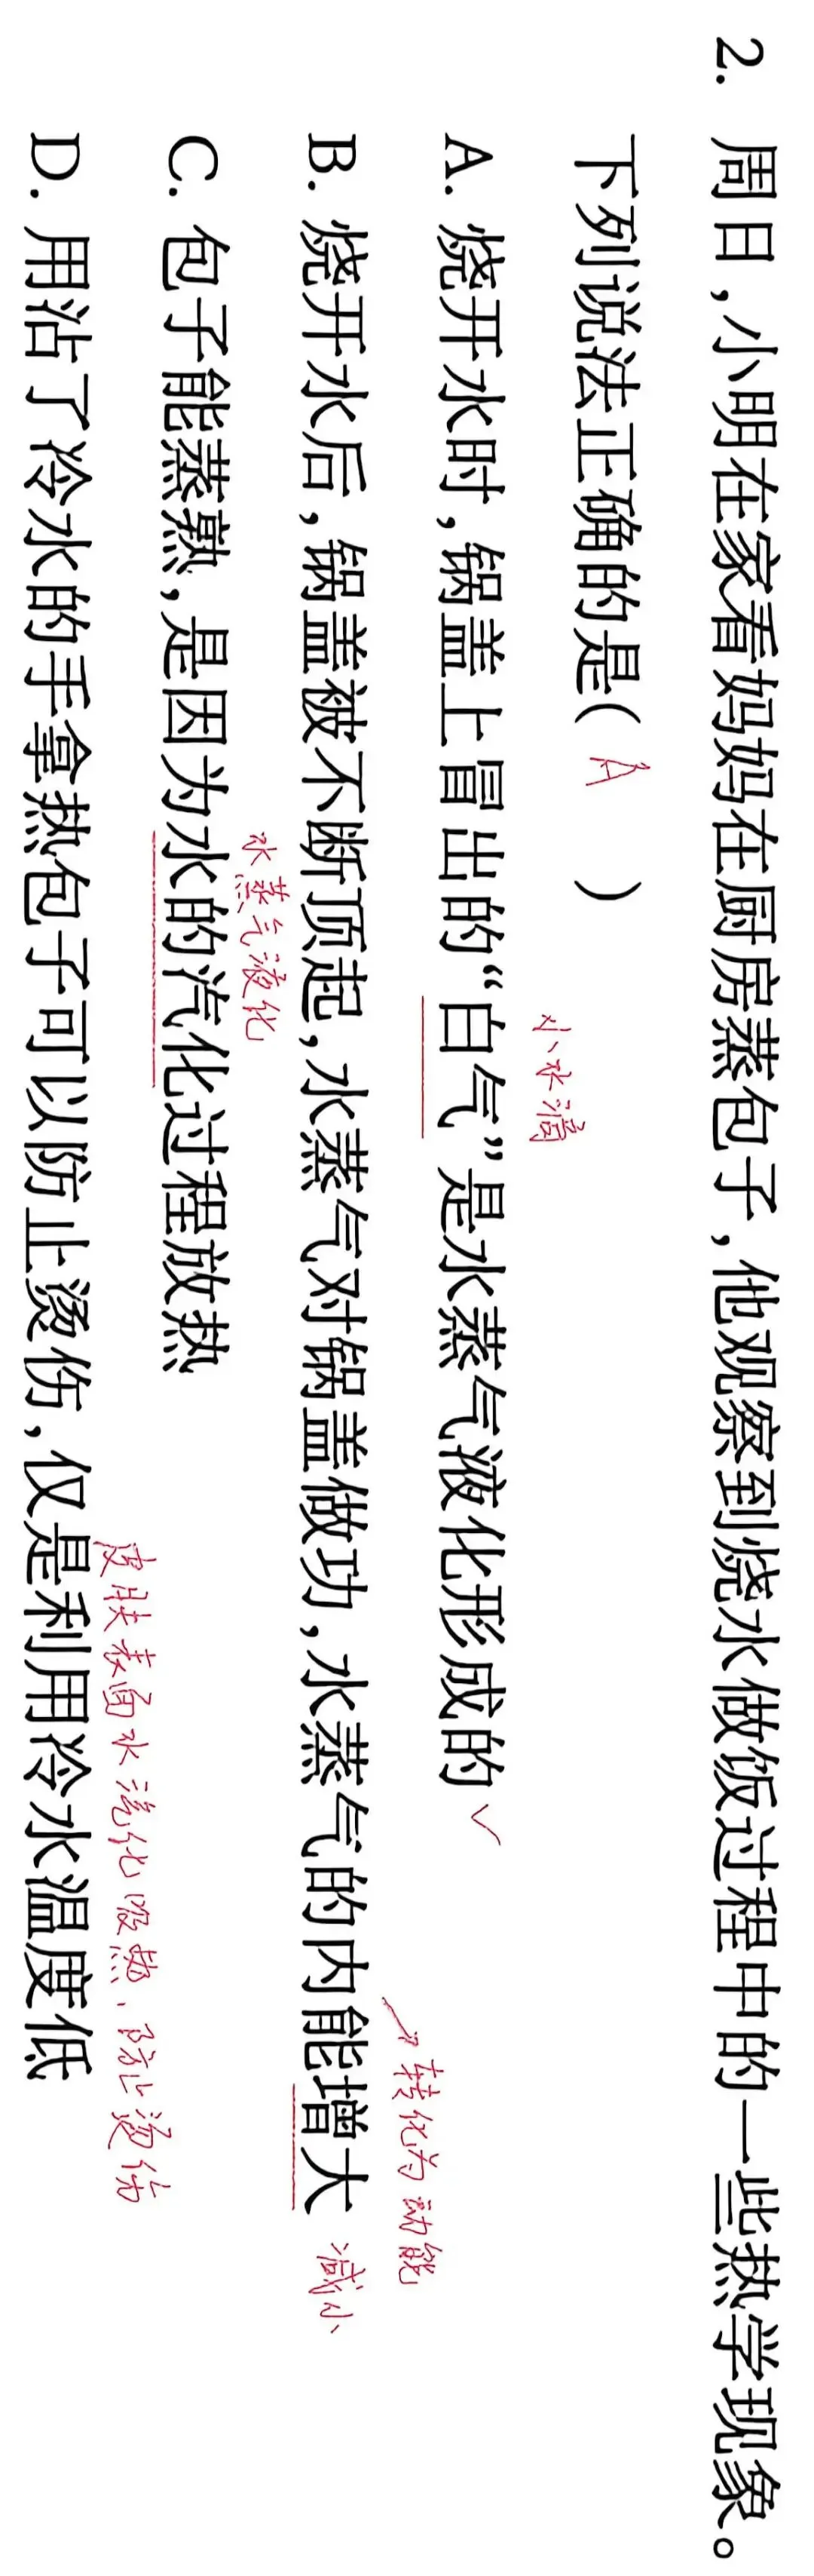 2. 周日,小明在家看妈妈在厨房蒸包子,他观察到烧水做饭过程中的一些热学现象。
下列说法正确的是( A )
小水滴
A. 烧开水时,锅盖上冒出的“白气”是水蒸气液化形成的✓
→转化为动能
B. 烧开水后,锅盖被不断顶起,水蒸气对锅盖做功,水蒸气的内能增大 减小
水蒸气液化
C. 包子能蒸熟,是因为水的汽化过程放热
皮肤表面水汽化吸热、防止烫伤
D. 用沾了冷水的手拿热包子可以防止烫伤,仅是利用冷水温度低